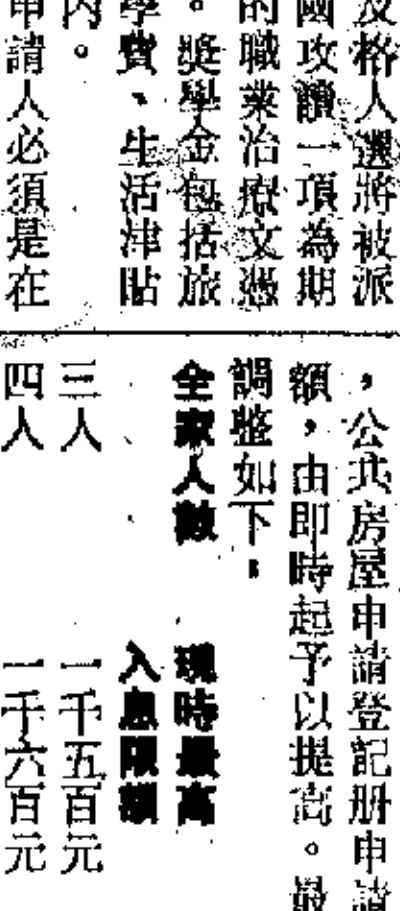 及格人選將被派
國攻讀一項為期
的職業治療文憑
。獎學金包括旅
學費、生活津貼
內。
申請人必須是在
，公共房屋申請登記册申請
額，由即時起予以提高。最
調整如下：
全家人數 現時最高
入息限額
三人 一千五百元
四人 一千六百元